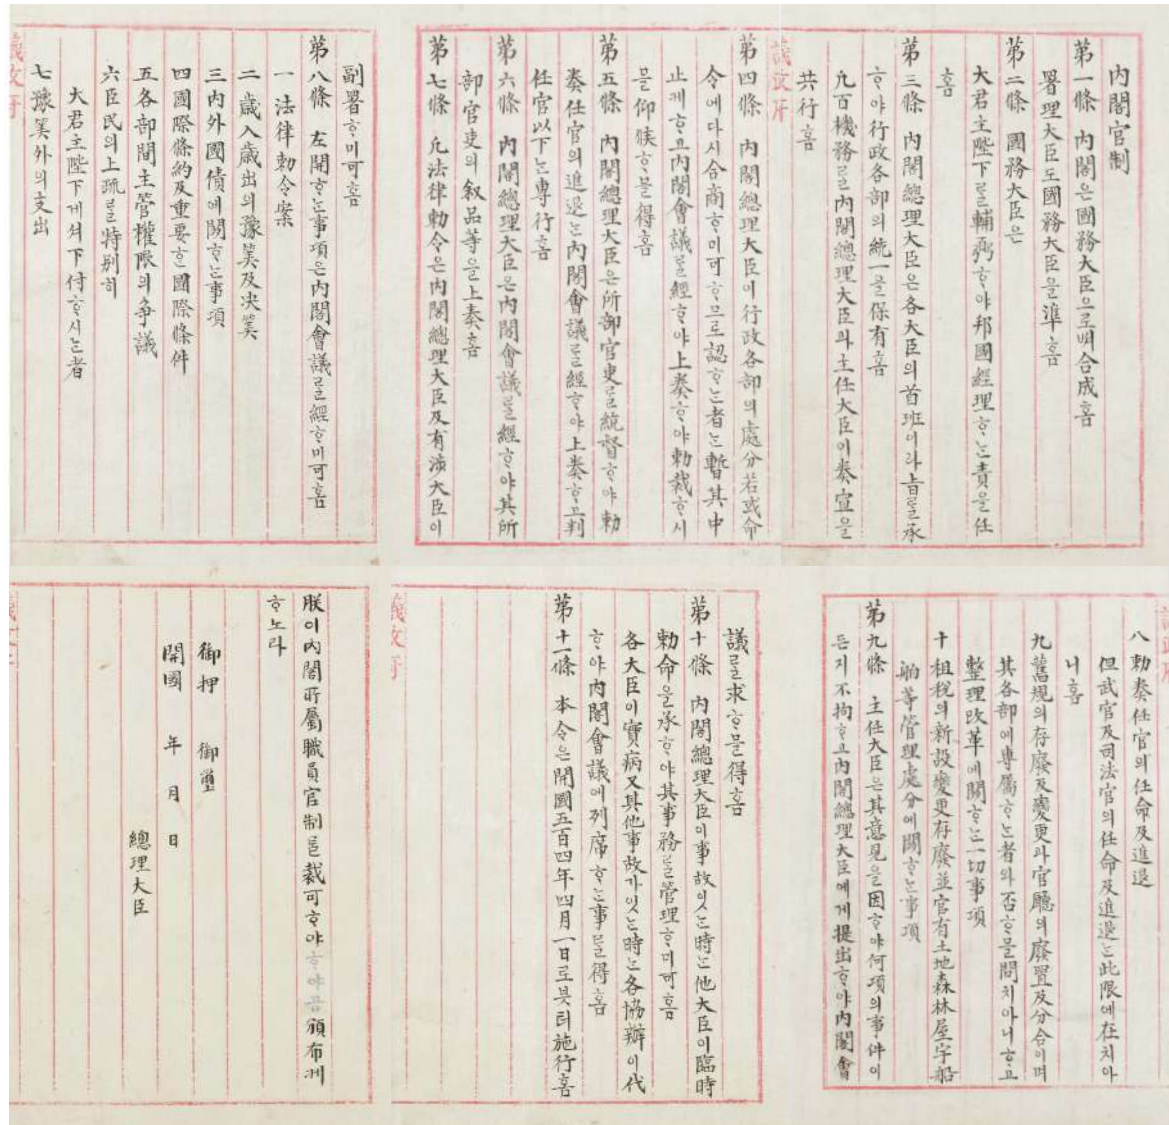 內閣官制
第一條 內閣은國務大臣으로뼈合成홈
署理大臣도國務大臣을準홈
第二條 國務大臣은
大君主陛下를輔弼ᄒᆞ야邦國經理ᄒᆞᄂᆞᆫ責을任
홈
第三條 內閣總理大臣은各大臣의首班이라旨를承
ᄒᆞ야行政各部의統一을保有홈
凡百機務를內閣總理大臣과主任大臣이奏宣을
共行홈
議政府
第四條 內閣總理大臣이行政各部의處分若或命
令에다시合商ᄒᆞ미可ᄒᆞ므로認ᄒᆞᄂᆞᆫ者ᄂᆞᆫ暫其中
止케ᄒᆞ고內閣會議를經ᄒᆞ야上奏ᄒᆞ야勅裁ᄒᆞ시
믈仰竢ᄒᆞ믈得홈
第五條 內閣總理大臣은所部官吏를統督ᄒᆞ야勅
奏任官의進退ᄂᆞᆫ內閣會議를經ᄒᆞ야上奏ᄒᆞ고判
任官以下ᄂᆞᆫ專行홈
第六條 內閣總理大臣은內閣會議를經ᄒᆞ야其所
部官吏의叙品等을上奏홈
第七條 凡法律勅令은內閣總理大臣及有涉大臣이
副署ᄒᆞ미可홈
第八條 左開ᄒᆞᄂᆞᆫ事項은內閣會議를經ᄒᆞ미可홈
一 法律勅令案
二 歲入歲出의豫筭及決筭
三 內外國債에關ᄒᆞᄂᆞᆫ事項
四 國際條約及重要ᄒᆞᆫ國際條件
五 各部間主管權限의爭議
六 臣民의上疏를特別히
大君主陛下게셔下付ᄒᆞ시ᄂᆞᆫ者
七 豫筭外의支出
議政府
議政府
八 勅奏任官의任命及進退
但武官及司法官의任命及進退ᄂᆞᆫ此限에在치아
니홈
九 舊規의存廢及變更과官廳의廢置及分合이며
其各部에專屬ᄒᆞᄂᆞᆫ者와否ᄒᆞ믈問치아니ᄒᆞ고
整理改革에關ᄒᆞᄂᆞᆫ一切事項
十 租稅의新設變更存廢並官有土地森林屋宇船
舶等管理處分에關ᄒᆞᄂᆞᆫ事項
第九條 主任大臣은其意見을因ᄒᆞ야何項의事件이
든지不拘ᄒᆞ고內閣總理大臣에게提出ᄒᆞ야內閣會
議를求ᄒᆞ믈得홈
第十條 內閣總理大臣이事故잇ᄂᆞᆫ時ᄂᆞᆫ他大臣이臨時
勅命을承ᄒᆞ야其事務를管理ᄒᆞ미可홈
各大臣이實病又其他事故가잇ᄂᆞᆫ時ᄂᆞᆫ各協辦이代
ᄒᆞ야內閣會議에列席ᄒᆞᄂᆞᆫ事를得홈
第十一條 本令은開國五百四年四月一日로븟터施行홈
議政府
朕이內閣所屬職員官制를裁可ᄒᆞ야ᄒᆞ야곰頒布케
ᄒᆞ노라
御押 御璽
開國 年 月 日
總理大臣